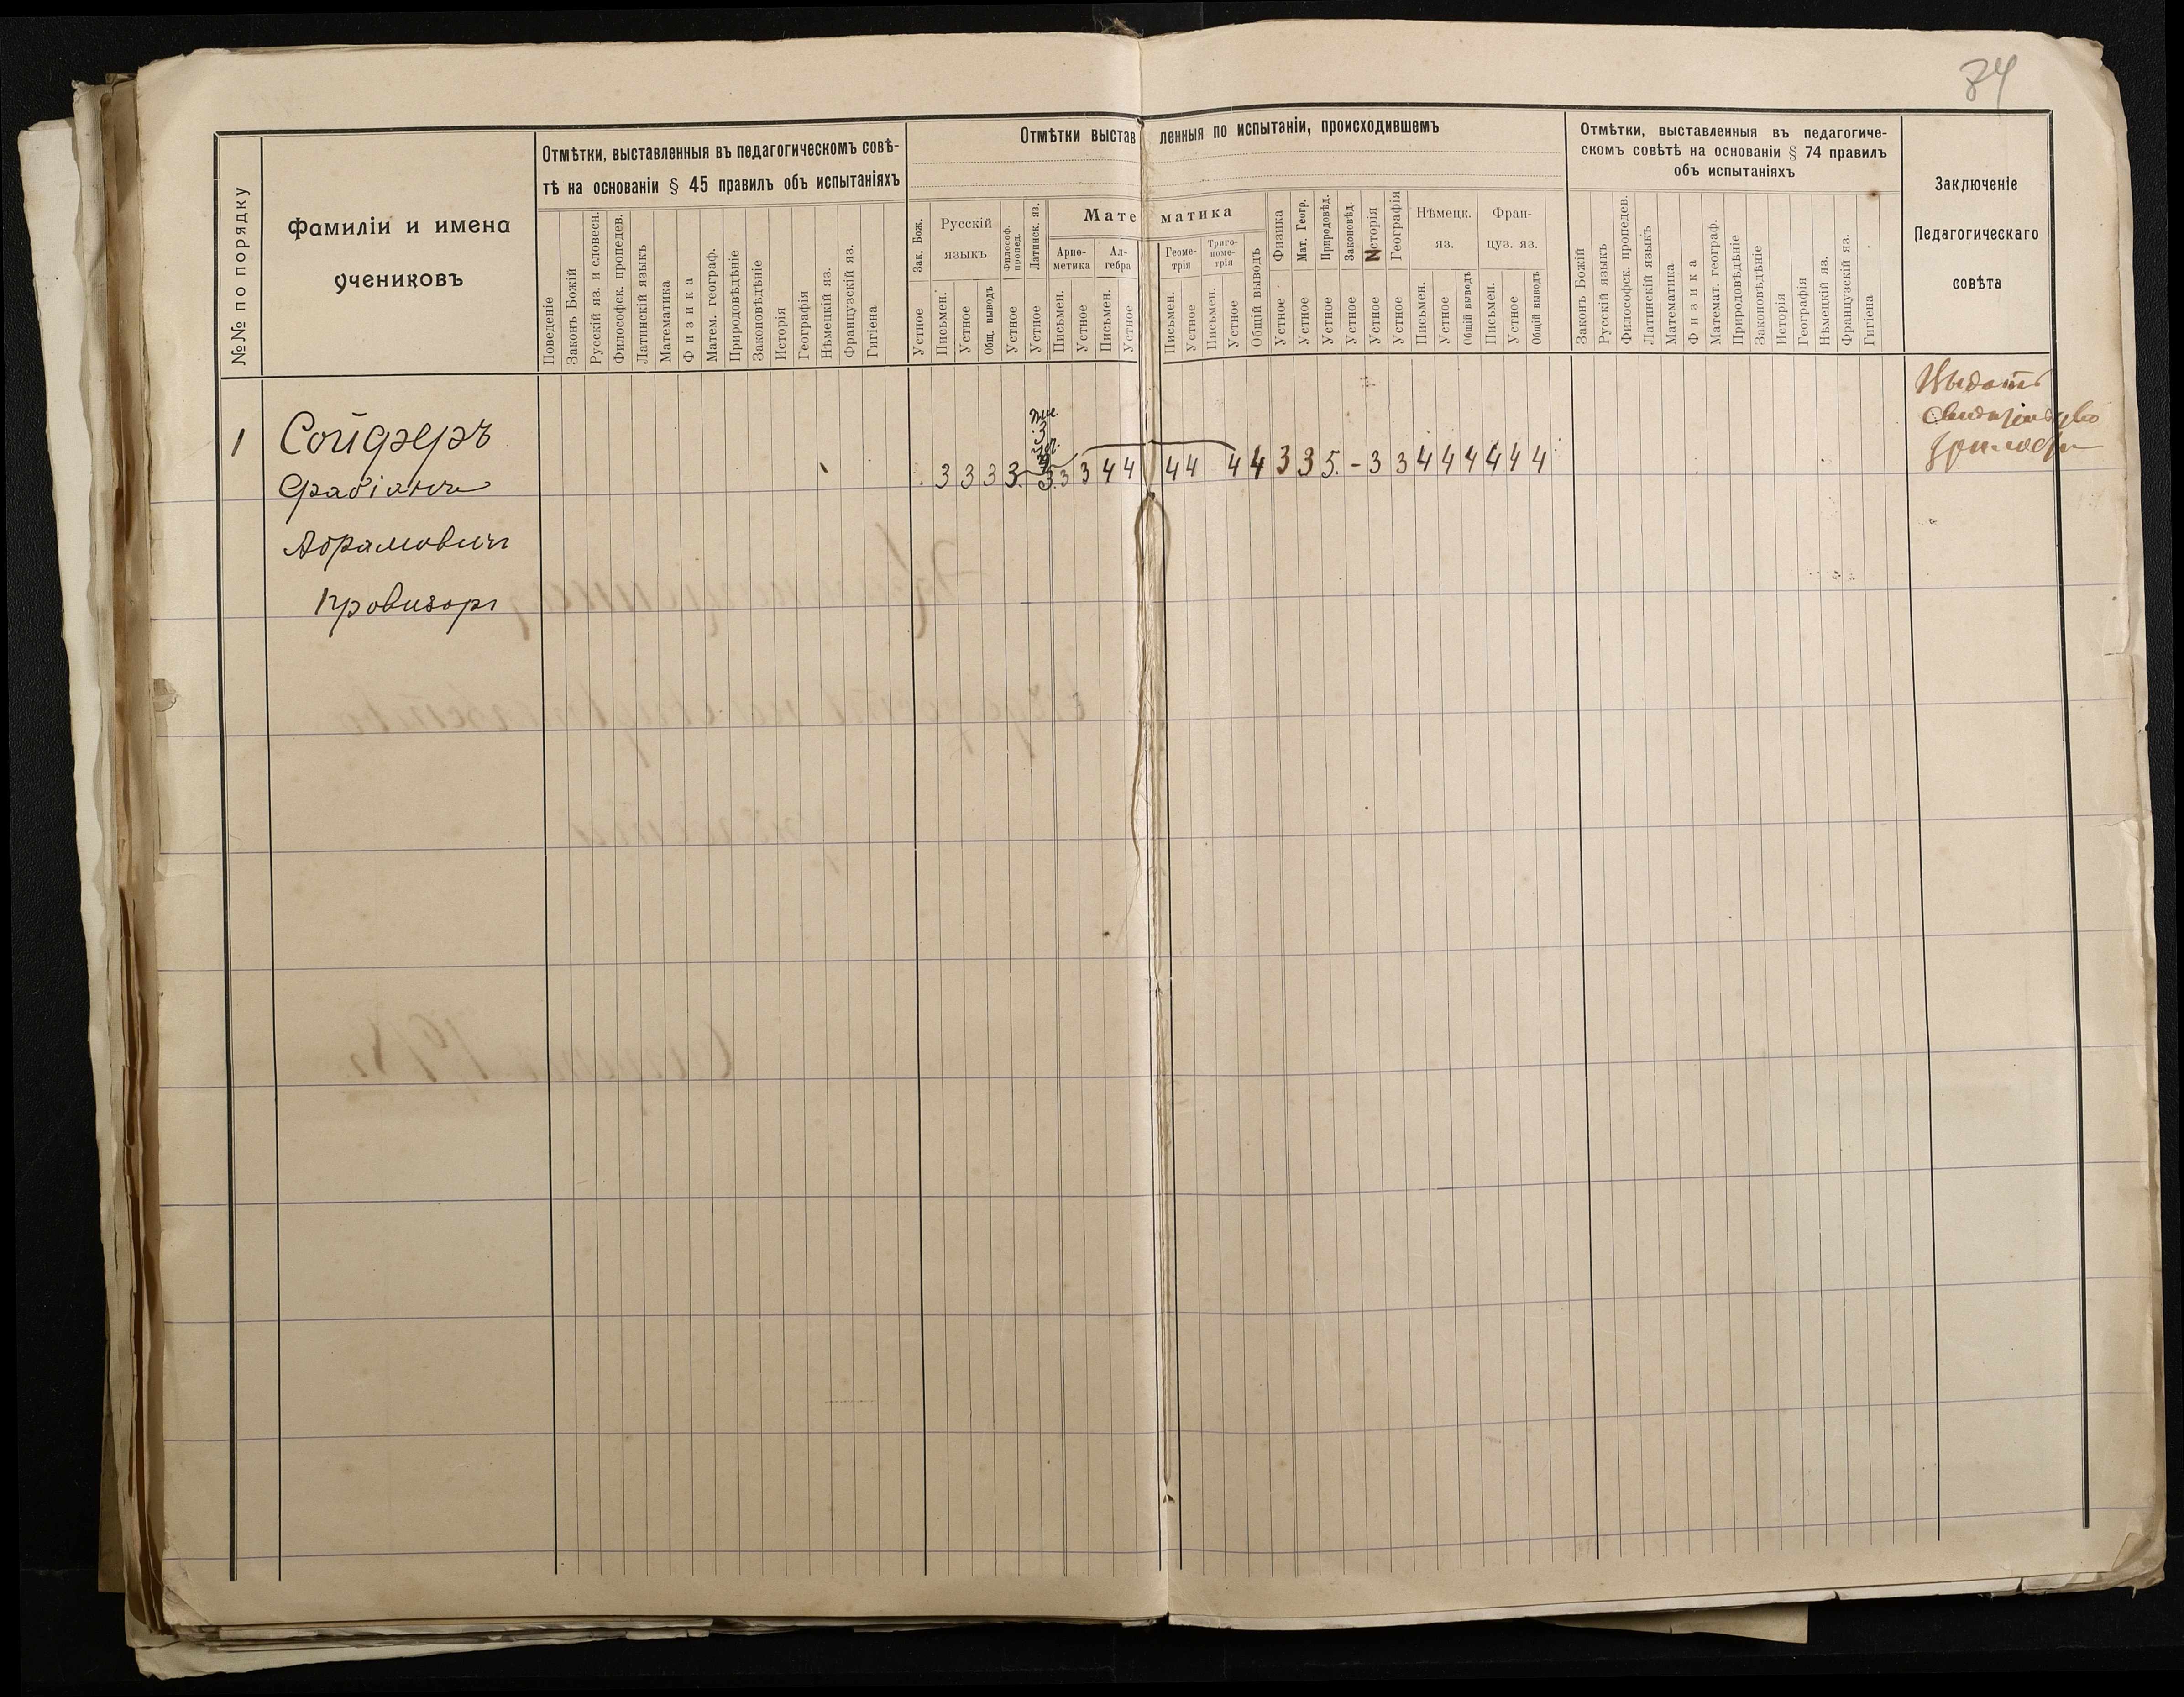 74
№№ по порядку
Фамиліи и имена
учениковъ
Отмѣтки, выставленныя въ педагогическомъ совѣ-
тѣ на основаніи § 45 правилъ объ испытаніяхъ
Поведеніе
Законъ Божій
Русскій яз. и словесн.
Философск. пропедев.
Латинскій языкъ
Математика
Физика
Матем. географ.
Природовѣдѣніе
Законовѣдѣніе
Исторія
Географія
Нѣмецкій яз.
Французскій яз.
Гигіена
Отмѣтки выставленныя по испытаніи, происходившемъ
Зак. Бож.
Устное
Русскій
языкъ
Письмен.
Устное
Общ. выводъ
Философ.
пропед.
Устное
Латинск. яз.
Устное
Математика
Ариѳ-
метика
Письмен.
Устное
Ал-
гебра
Письмен.
Устное
Геоме-
трія
Письмен.
Устное
Триго-
номе-
трія
Письмен.
Устное
Общій выводъ
Физика
Устное
Мат. Геогр.
Устное
Природовѣд.
Устное
Законовѣд.
Устное
Исторія
Устное
Географія
Устное
Нѣмецк.
яз.
Письмен.
Устное
Общій выводъ
Фран-
цуз. яз.
Письмен.
Устное
Общій выводъ
Отмѣтки, выставленныя въ педагогиче-
скомъ совѣтѣ на основаніи § 74 правилъ
объ испытаніяхъ
Законъ Божій
Русскій языкъ
Философск. пропедев.
Латинскій языкъ
Математика
Физика
Математ. географ.
Природовѣдѣніе
Законовѣдѣніе
Исторія
Географія
Нѣмецкій яз.
Французскій яз.
Гигіена
Заключеніе
Педагогическаго
совѣта
1
Сойферъ
Фабіанъ
Абрамовичъ
провизоръ
3 3 3 3. 3. 3 3 4 4 4 4 4 4 3 3 5. - 3 3 4 4 4 4 4 4
Выдать
свидѣтельство
зрѣлости